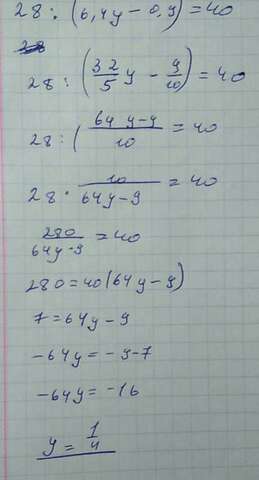 28 : (6,4y - 0,9) = 40
28 : (32/5 y - 9/10) = 40
28 : ( 64y-9/10 = 40
28 · 10/64y-9 = 40
280/64y-9 = 40
280 = 40(64y - 9)
7 = 64y - 9
-64y = -9-7
-64y = -16
y = 1/4